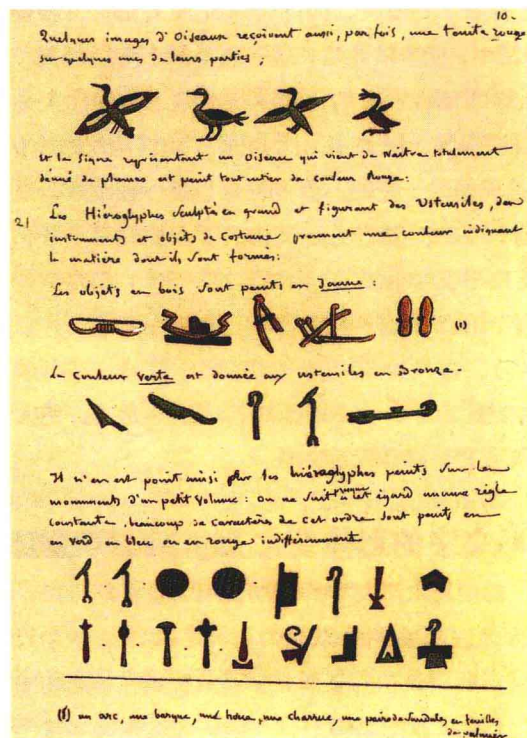 10.
Quelques images d'Oiseaux reçoivent aussi, par fois, une teinte rouge
sur quelques unes de leurs parties ;
Et le Signe représentant un Oiseau qui vient de Naître totalement
dénué de plumes est peint tout entier de couleur Rouge :
2) Les Hiéroglyphes Sculptés en grand et figurant des Ustensiles, des
instruments et objets de Costume prennent une couleur indiquant
la matière dont ils sont formés :
Les objets en bois sont peints en Jaune :
(1)
La Couleur verte est donnée aux ustensiles en Bronze.
Il n'en est point ainsi pour les hiéroglyphes peints sur les
monuments d'un petit Volume : on ne suit presque à cet égard aucune règle
constante, beaucoup de caractères de cet ordre sont peints en
en verd en bleu ou en rouge indifféremment
(1) un arc, une barque, une houe, une charrue, une paire de Sandales en feuilles
de palmier